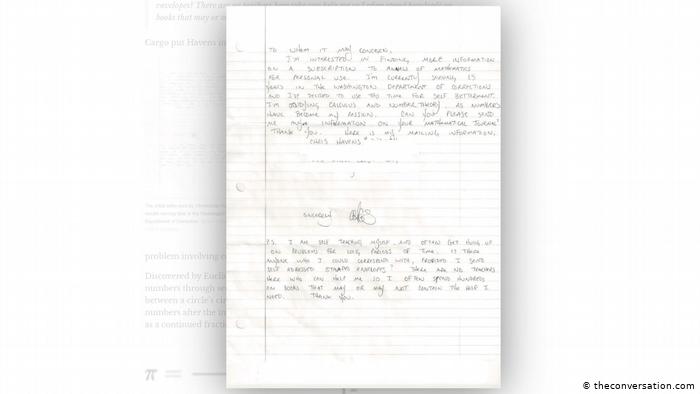 books that may or
Cargo put Havens in
TO WHOM IT MAY CONCERN,
I'M INTERESTED IN FINDING MORE INFORMATION
ON A SUBSCRIPTION TO ANNALS OF MATHEMATICS
FOR PERSONAL USE. I'M CURRENTLY SERVING 25
YEARS IN THE WASHINGTON DEPARTMENT OF CORRECTIONS
AND I'VE DECIDED TO USE THIS TIME FOR SELF BETTERMENT.
I'M STUDYING CALCULUS AND NUMBER THEORY, AS NUMBERS
HAVE BECOME MY PASSION. CAN YOU PLEASE SEND
ME INFORMATION ON YOUR MATHEMATICAL JOURNAL?
THANK YOU. HERE IS MY MAILING INFORMATION,
CHRIS HAVENS
SINCERELY
P.S. I AM SELF TEACHING MYSELF AND OFTEN GET HUNG UP
ON PROBLEMS FOR LONG PERIODS OF TIME. IS THERE
ANYONE WHO I COULD CORRESPOND WITH, PROVIDED I SEND
SELF ADDRESSED STAMPED ENVELOPES? THERE ARE NO TEACHERS
HERE WHO CAN HELP ME SO I OFTEN SPEND HUNDREDS
ON BOOKS THAT MAY OR MAY NOT CONTAIN THE HELP I
NEED. THANK YOU.
problem involving
Discovered by
numbers through
between a circle's
numbers after the
as a continued
π =
© theconversation.com